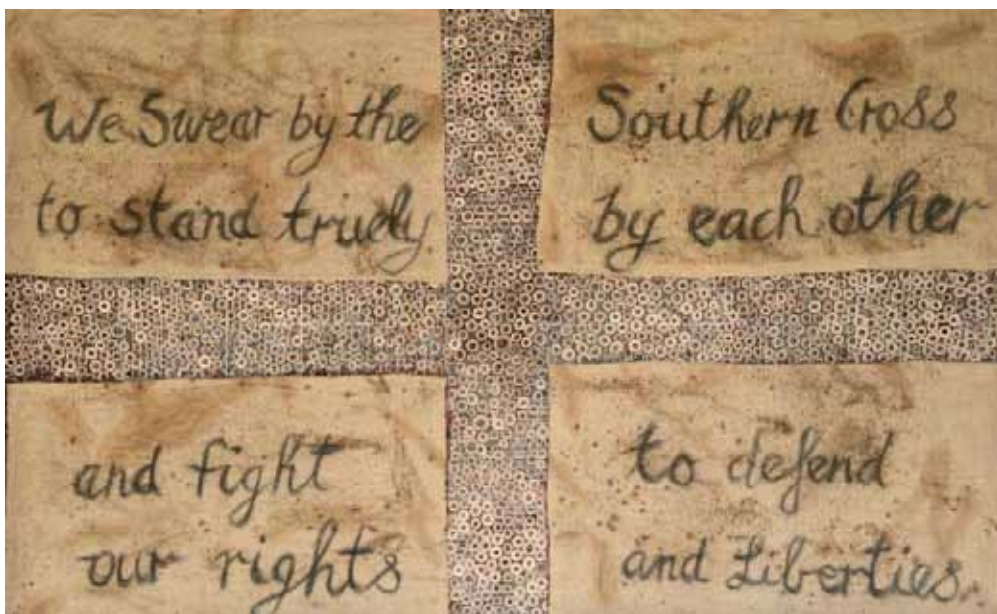 We Swear by the Southern Cross
to stand truely by each other
and fight to defend
our rights and Liberties.